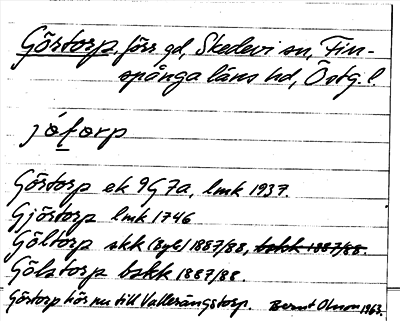 Görstorp, förr gd, Skedevi sn, Fin-
spånga läns hd, Östg. l.
jóforp
Görstorp ek 9G7a, lmk 1937.
Gjörstorp lmk 1746
Göltorp skk (Byk) 1887/88, bskk 1887/88.
Gölstorp bskk 1887/88.
Görstorp hör nu till Vallerängstorp. Bernt Olsson 1963.